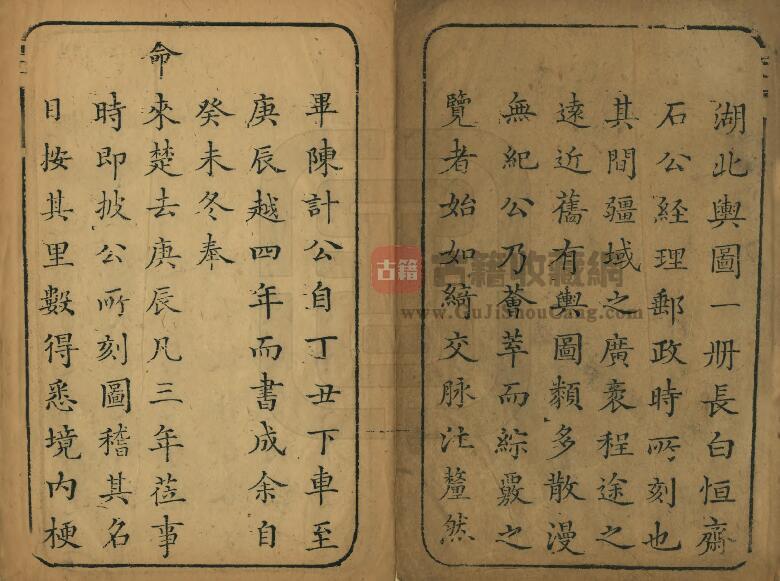 湖北輿圖一册長白恒齋
石公經理郵政時所刻也
其間疆域之廣袤程途之
遠近舊有輿圖類多散漫
無紀公乃薈萃而綜覈之
覽者始如綺交脉注釐然
畢陳計公自丁丑下車至
庚辰越四年而書成余自
癸未冬奉
命
來楚去庚辰凡三年莅事
時即披公所刻圖稽其名
目按其里數得悉境内梗
古籍
古籍收藏網
www.GuJiShouCang.com